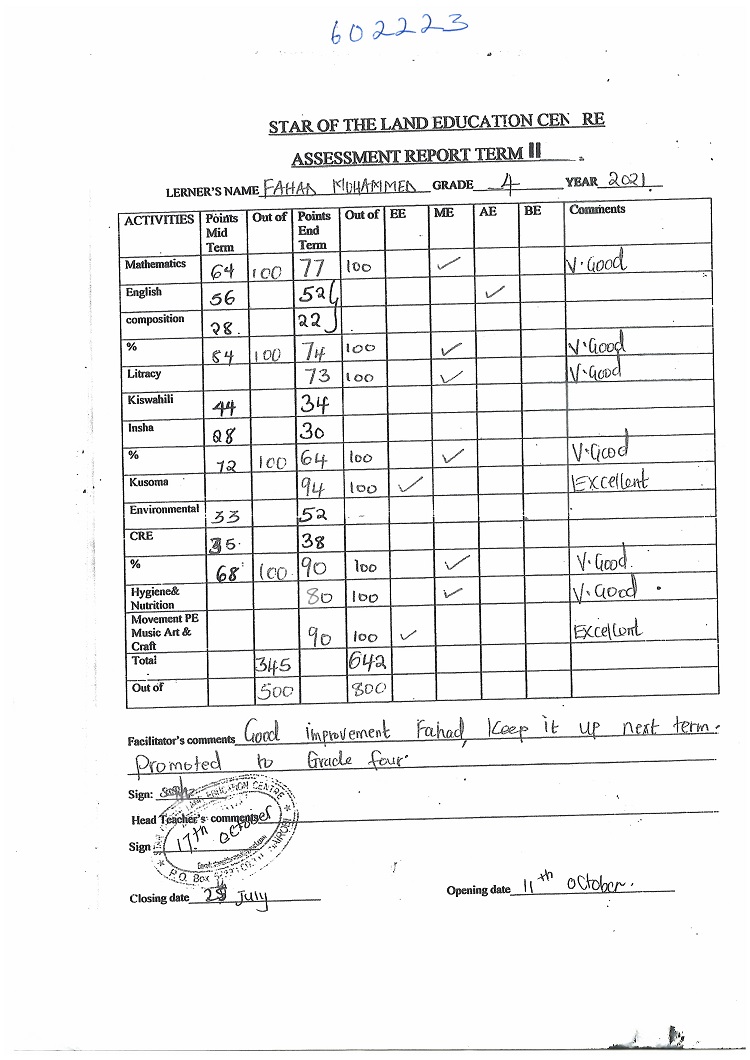 602223
STAR OF THE LAND EDUCATION CEN RE
ASSESSMENT REPORT TERM II
LERNER'S NAME FAHAD MUHAMMED GRADE 4 YEAR 2021
ACTIVITIES Points Mid Term Out of Points End Term Out of EE ME AE BE Comments
Mathematics 64 100 77 100 ✓ V.Good
English 56 52 ✓
composition 28. 22
% 84 100 74 100 ✓ V.Good
Litracy 73 100 ✓ V.Good
Kiswahili 44 34
Insha 28 30
% 72 100 64 100 ✓ V.Good
Kusoma 94 100 ✓ Excellent
Environmental 33 52 -
CRE 35. 38
% 68 100. 90 100 ✓ V.Good.
Hygiene& Nutrition 80 100 ✓ V.Good
Movement PE Music Art & Craft 90 100 ✓ Excellent
Total 345 642
Out of 500 800
Facilitator's comments Good improvement Fahad, Keep it up next term.
Promoted to Grade four.
Sign:
Head Teacher's comments
17th October
Sign
P.O. Box
NAIROBI
Closing date July
Opening date 11th October.